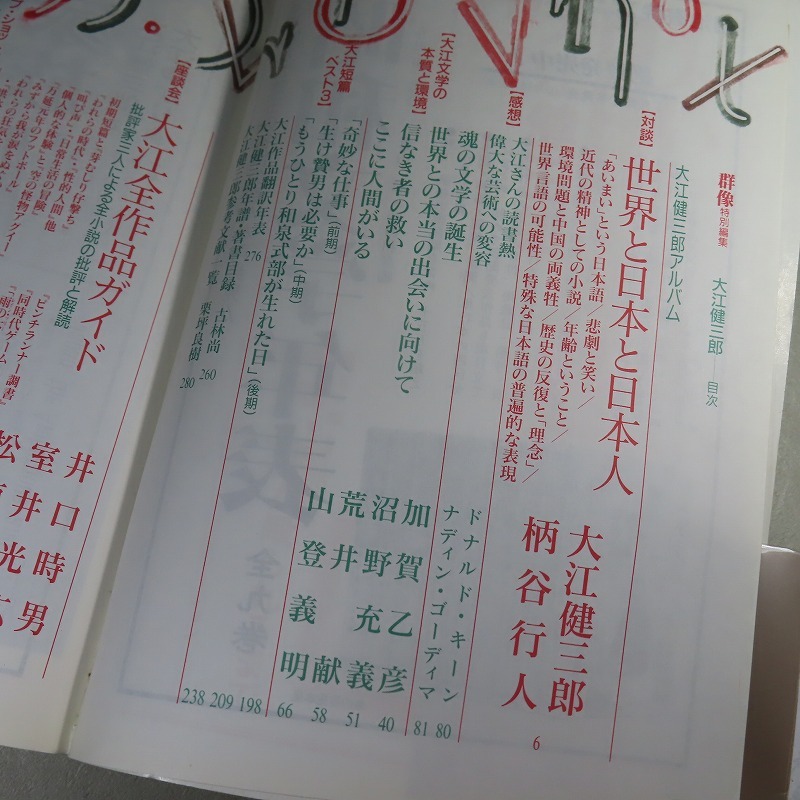 群像 特別編集 大江健三郎——目次
大江健三郎アルバム
【対談】世界と日本と日本人
「あいまい」という日本語／悲劇と笑い／
近代の精神としての小説／年齢ということ／
環境問題と中国の両義牲／歴史の反復と「理念」／
世界言語の可能性／特殊な日本語の普遍的な表現
大江健三郎
柄谷行人
6
【感想】
大江さんの読書熱 ドナルド・キーン 80
偉大な芸術への変容 ナディン・ゴーディマ 81
【大江文学の本質と環境】
魂の文学の誕生 加賀乙彦 40
世界との本当の出会いに向けて 沼野充義 51
信なき者の救い 荒井献 58
ここに人間がいる 山登義明 66
大江短篇ベスト3】
「奇妙な仕事」(前期) 198
「生け贄男は必要か」(中期) 209
「もうひとり和泉式部が生れた日」(後期) 238
大江作品翻訳年表 276
大江健三郎年譜・著書目録 古林尚 260
大江健三郎参考文献一覧 栗坪良樹 280
【座談会】大江全作品ガイド
批評家三人による全小説の批評と解読
初期短篇と『芽むしり仔撃ち』
『われらの時代』『性的人間』他
『叫び声』『日常生活の冒険』
『個人的な体験』と『空の怪物アグイー』
『万延元年のフットボール』
『みずから我が涙を
『ピンチランナー調書』
『同時代ゲーム
井口時男
室井光広